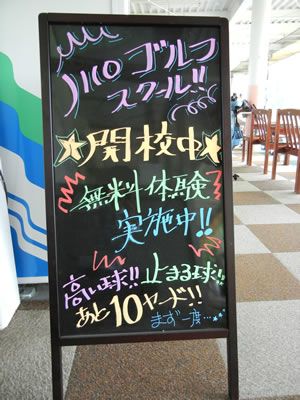 ゴルフ
スクール!!
★開校中★
無料体験
実施中!!
高い球!! 止まる球!!
あと10ヤード!!
まず一度…